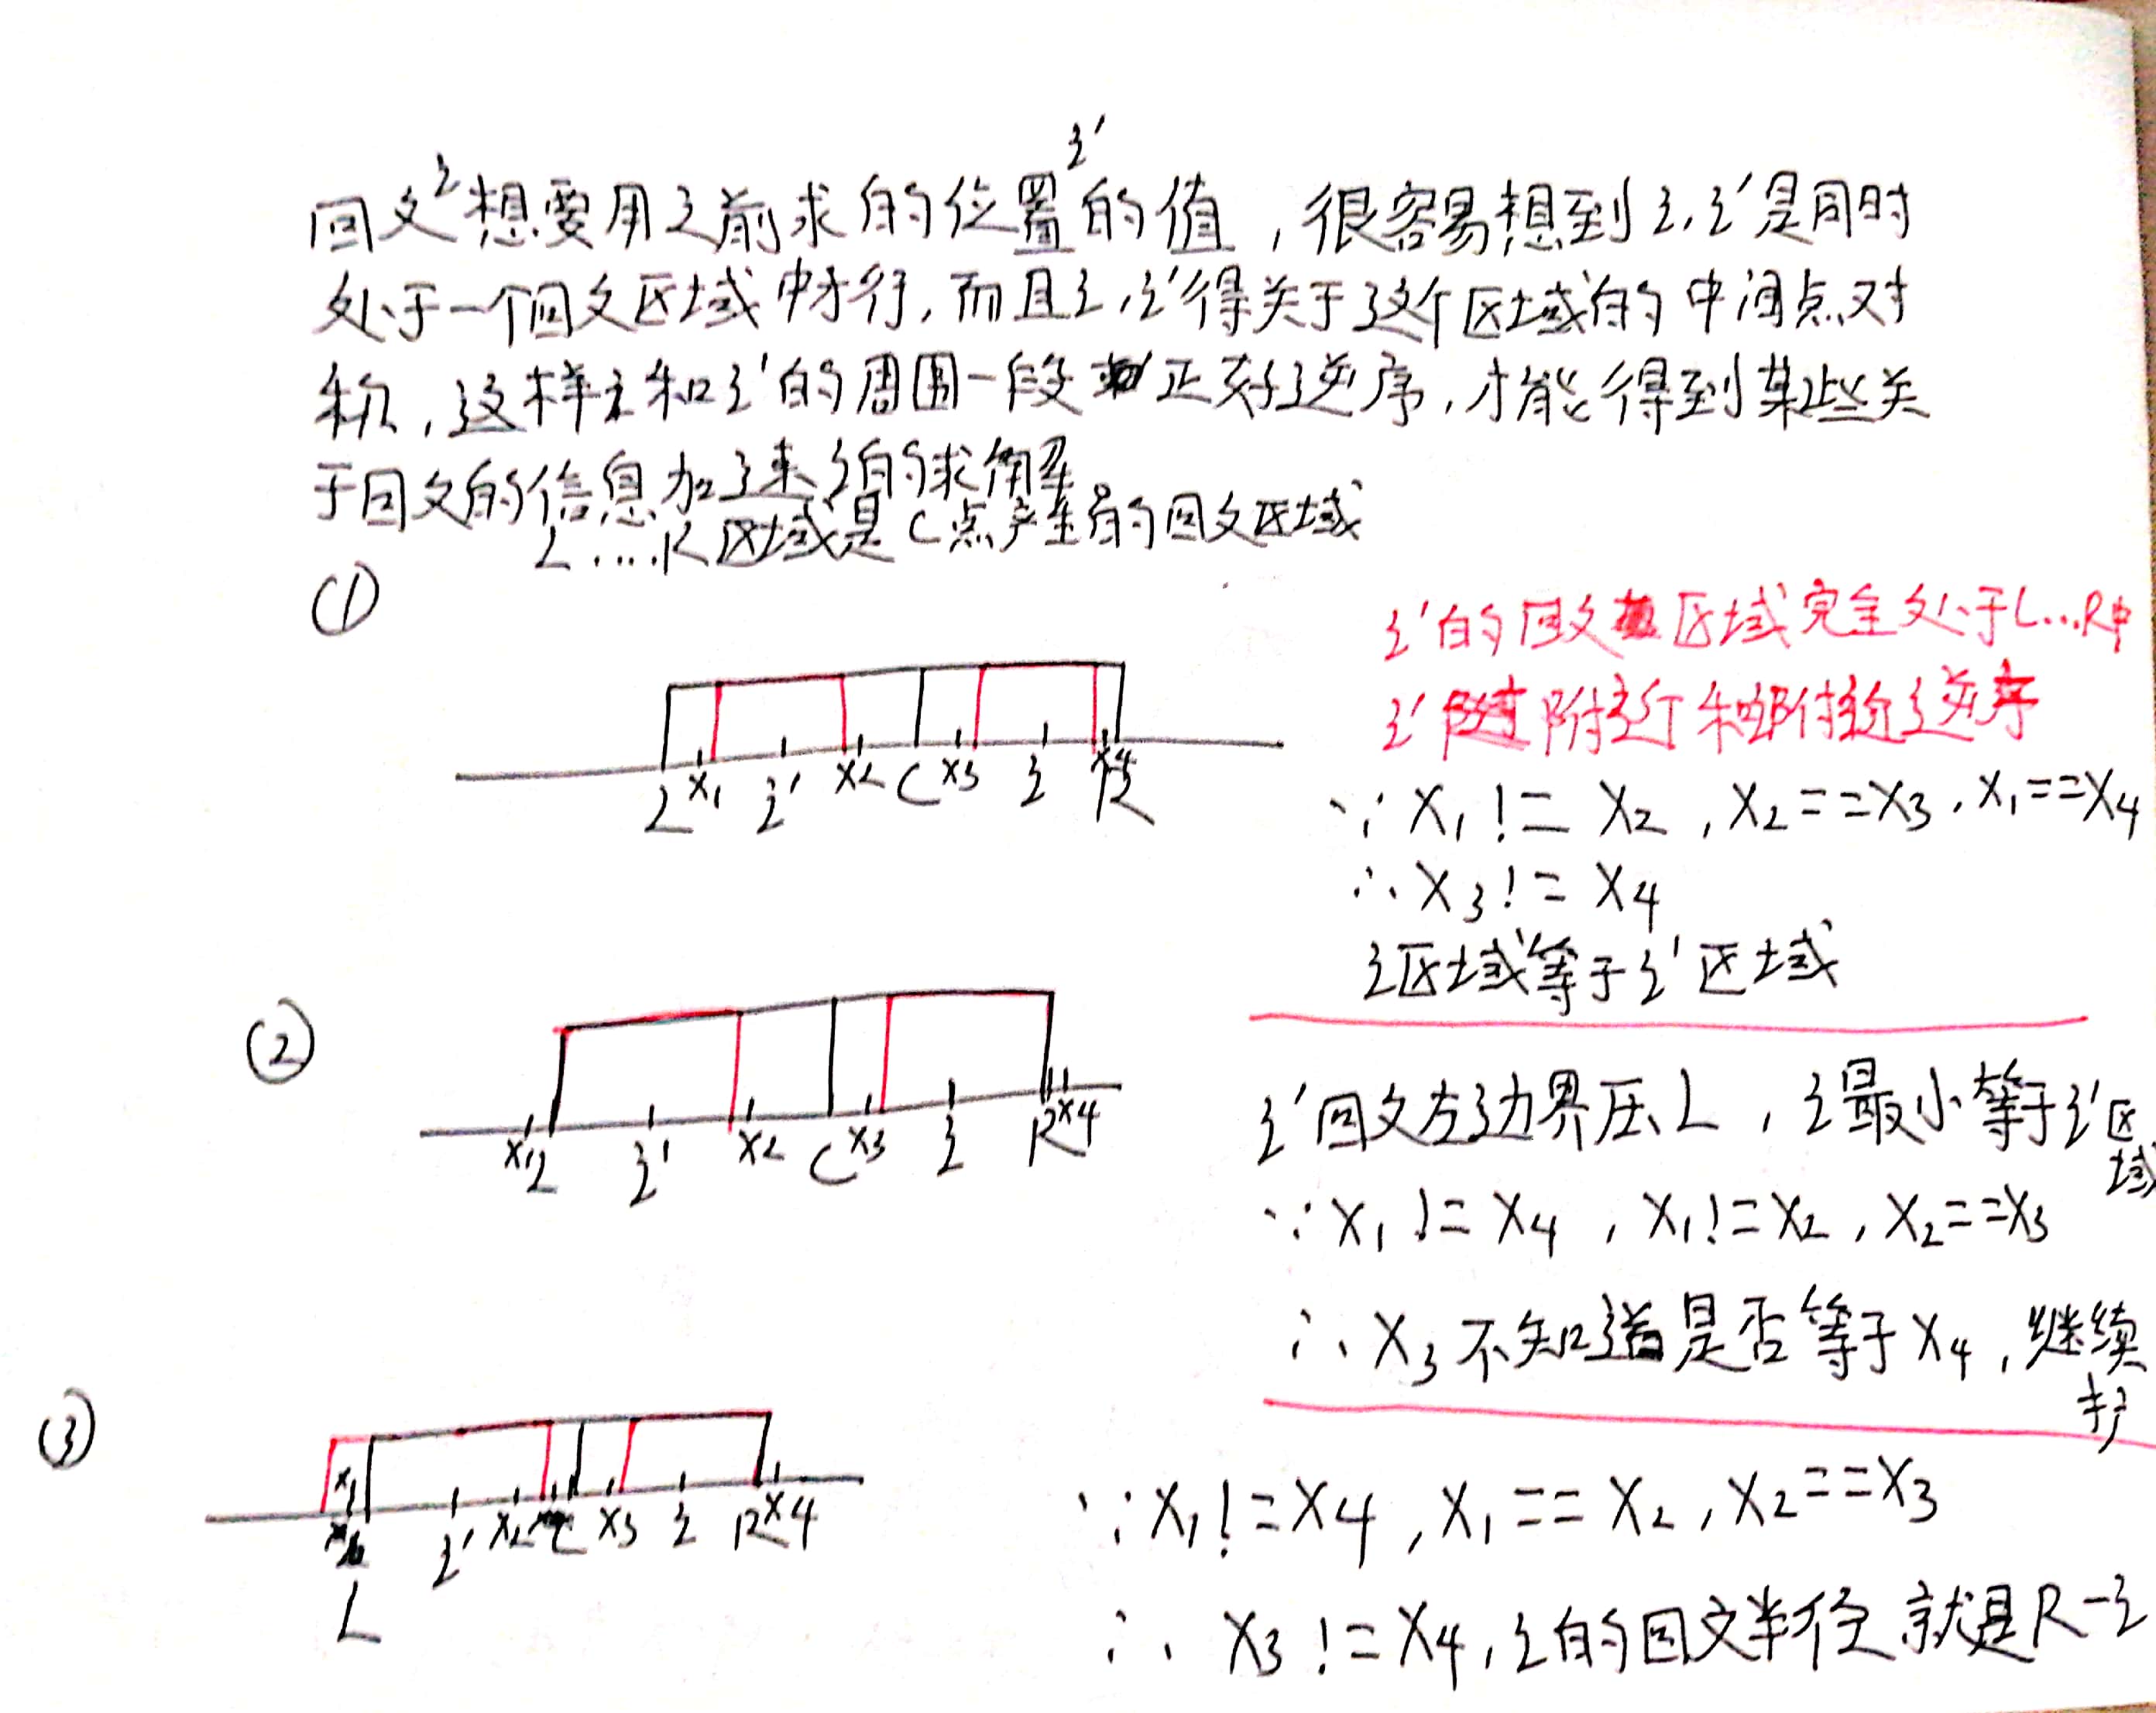 回文i想要用之前求的位置i'的值，很容易想到i,i'是同时
处于一个回文区域中才行，而且i,i'得关于这个区域的中间点对
称，这样i和i'的周围一段正好逆序，才能得到某些关
于回文的信息加速i的求解
L....R区域是C点产生的回文区域
①
i'的回文区域完全处于L...R中
i'附近和i附近逆序
L x1 i' x2 C x3 i x4 R
∵ x1 != x2 , x2 == x3 , x1 == x4
∴ x3 != x4
i区域等于i'区域
②
x1 L i' x2 C x3 i R x4
i'回文左边界压L，i最小等于i'区域
∵ x1 != x4 , x1 != x2 , x2 == x3
∴ x3不知道是否等于x4，继续扩
③
x1 L i' x2 C x3 i R x4
∵ x1 != x4 , x1 == x2 , x2 == x3
∴ x3 != x4 , i的回文半径就是R-i